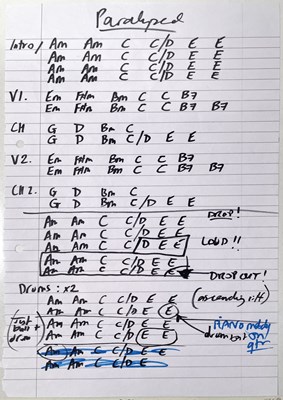 Paralysed
Intro/ Am Am C C/D E E
Am Am C C/D E E
Am Am C C/D E E
Am Am C C/D E E
V1. Em F#m Bm C C B7
Em F#m Bm C C B7 B7
CH G D Bm C
G D Bm C/D E E
V2. Em F#m Bm C C B7
Em F#m Bm C C B7 B7
CH 2. G D Bm C
G D Bm C/D E E
DROP!
Am Am C C/D E E
Am Am C C/D E E
LOUD!!
Am Am C C/D E E
Am Am C C/D E E
Am Am C C/D E E
DROP OUT!
Drums: x2
Am Am C C/D E E (ascending riff)
Am Am C C/D E E
just bass + drum
Am Am C C/D E E
drum but
PIANO melody on gtr
Am Am C C/D E E
Am Am C C/D E E
Am Am C C/D E E